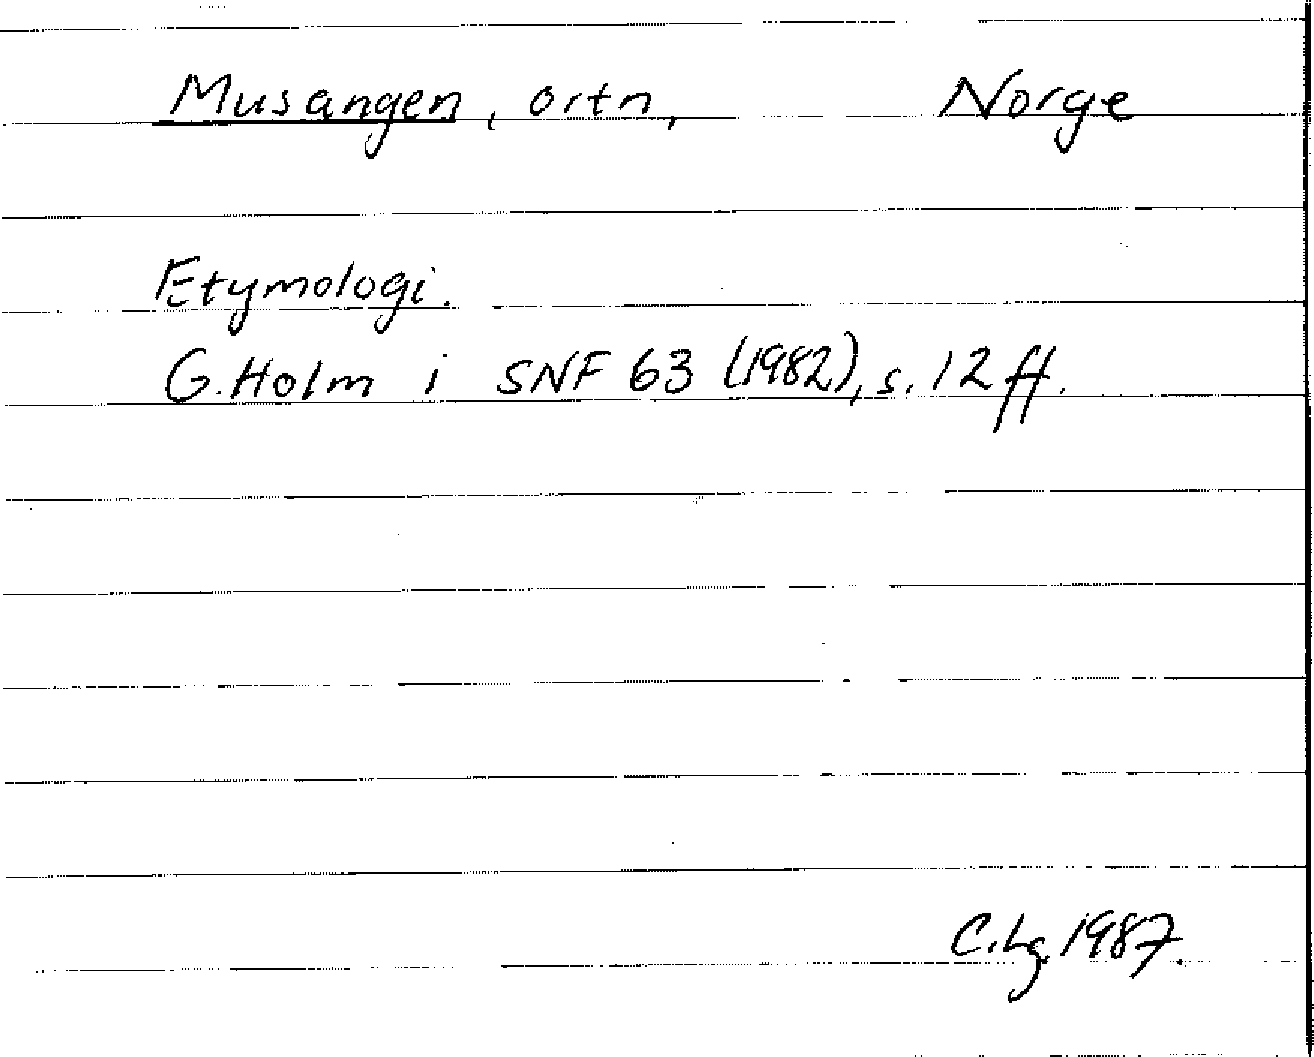 Musangen, ortn, Norge
Etymologi.
G. Holm i SNF 63 (1982), s. 12 ff.
C. Lg. 1987.